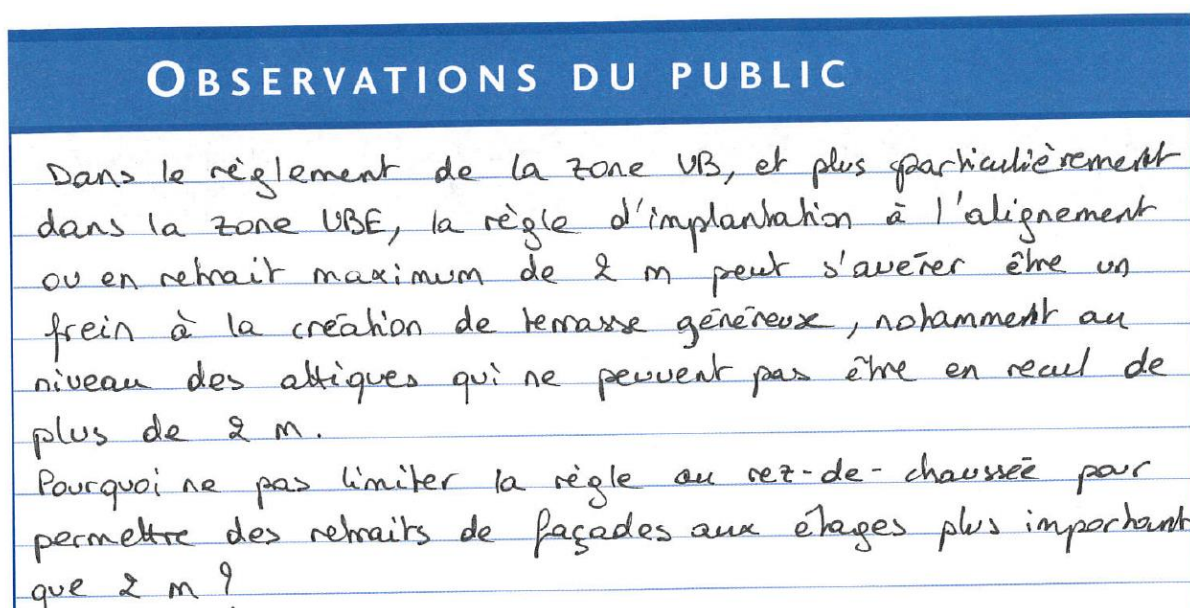 OBSERVATIONS DU PUBLIC
Dans le règlement de la zone UB, et plus particulièrement
dans la zone UBE, la règle d'implantation à l'alignement
ou en retrait maximum de 2 m peut s'avérer être un
frein à la création de terrasse généreux, notamment au
niveau des attiques qui ne peuvent pas être en recul de
plus de 2 m.
Pourquoi ne pas limiter la règle au rez-de-chaussée pour
permettre des retraits de façades aux étages plus important
que 2 m ?